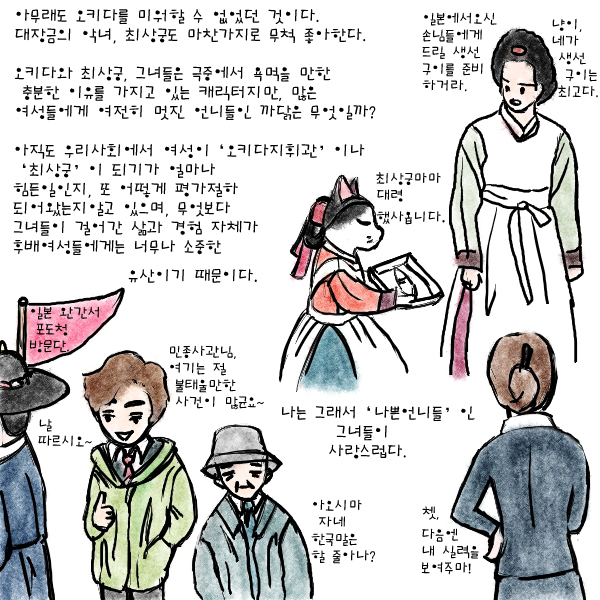 아무래도 오키다를 미워할 수 없었던 것이다.
대장금의 악녀, 최상궁도 마찬가지로 무척 좋아한다.
오키다와 최상궁, 그녀들은 극중에서 욕먹을 만한
충분한 이유를 가지고 있는 캐릭터지만, 많은
여성들에게 여전히 멋진 언니들인 까닭은 무엇일까?
아직도 우리사회에서 여성이 '오키다지휘관' 이나
'최상궁' 이 되기가 얼마나
힘든일인지, 또 어떻게 평가절하
되어왔는지알고 있으며, 무엇보다
그녀들이 걸어간 삶과 경험 자체가
후배여성들에게는 너무나 소중한
유산이기 때문이다.
일본에서오신
손님들에게
드릴 생선
구이를 준비
하거라.
냥이,
네가
생선
구이는
최고다.
최상궁마마
대령
했사옵니다.
일본 완간서
포도청
방문단.
날
따르시오~
민종사관님,
여기는 절
불태울만한
사건이 많군요~
나는 그래서 '나쁜언니들' 인
그녀들이
사랑스럽다.
아오시마
자네
한국말은
할 줄아나?
쳇,
다음엔
내 실력을
보여주마!